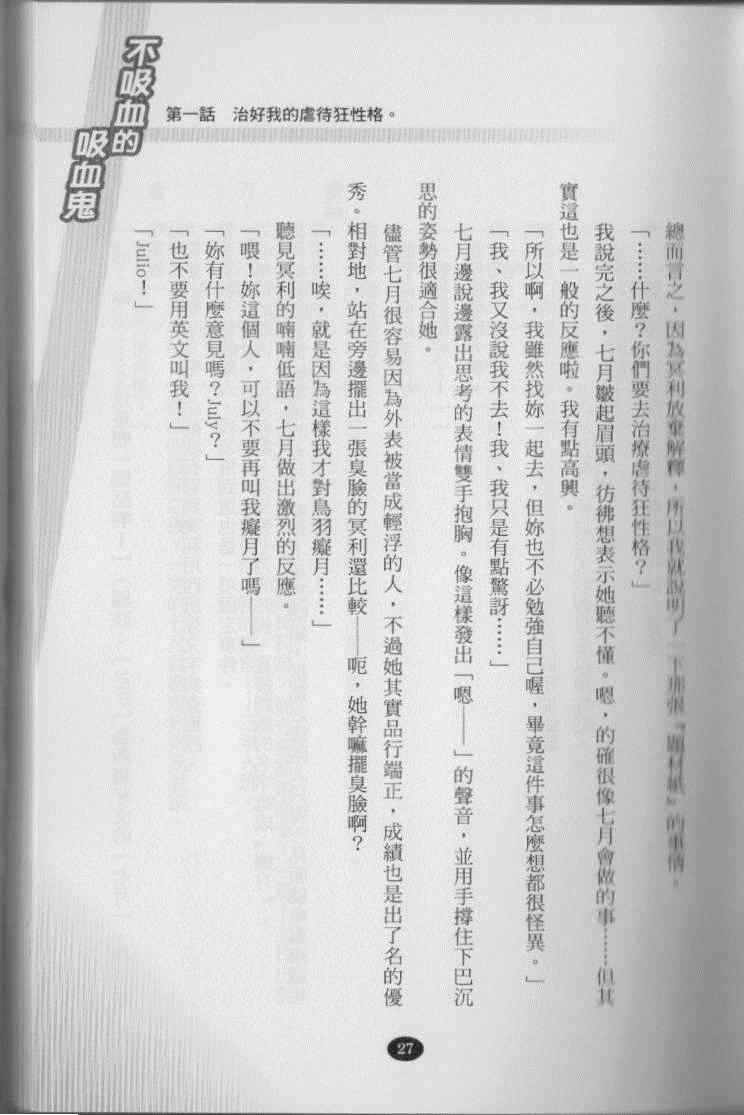 不吸血的
吸血鬼
第一話　治好我的虐待狂性格。
總而言之，因為冥利放棄解釋，所以我就說明了一下那張『題材紙』的事情。
「……什麼？你們要去治療虐待狂性格？」
我說完之後，七月皺起眉頭，彷彿想表示她聽不懂。嗯，的確很像七月會做的事……但其
實這也是一般的反應啦。我有點高興。
「所以啊，我雖然找妳一起去，但妳也不必勉強自己喔，畢竟這件事怎麼想都很怪異。」
「我、我又沒說我不去！我、我只是有點驚訝……」
七月邊說邊露出思考的表情雙手抱胸。像這樣發出「嗯——」的聲音，並用手撐住下巴沉
思的姿勢很適合她。
儘管七月很容易因為外表被當成輕浮的人，不過她其實品行端正，成績也是出了名的優
秀。相對地，站在旁邊擺出一張臭臉的冥利還比較——呃，她幹嘛擺臭臉啊？
「……唉，就是因為這樣我才對鳥羽癡月……」
聽見冥利的喃喃低語，七月做出激烈的反應。
「喂！妳這個人，可以不要再叫我癡月了嗎——」
「妳有什麼意見嗎？July？」
「也不要用英文叫我！」
「Julio！」
27